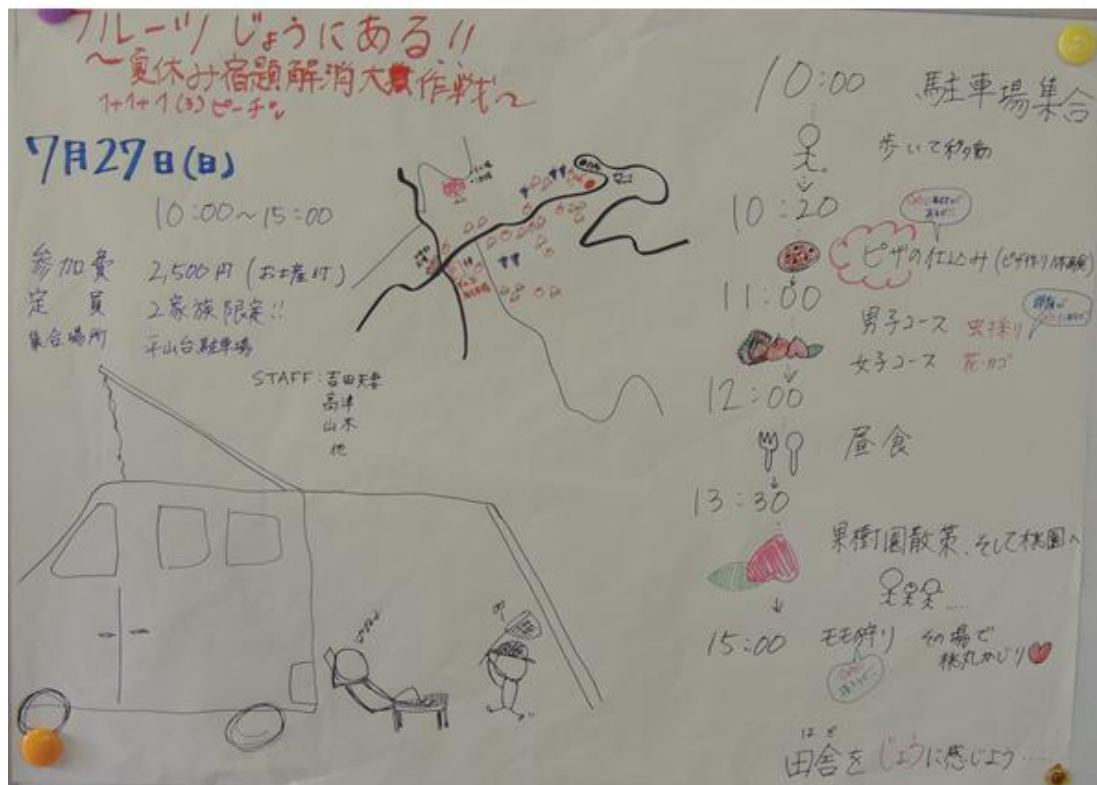 フルーツ じょうにある!!
~夏休み宿題解消大作戦~
1+1+1(3)ピーチ
7月27日(日)
10:00~15:00
参加費 2,500円(お土産付)
定員 2家族限定!!
集合場所 平山台駐車場
STAFF:吉田夫妻
高津
山本
他
10:00 駐車場集合
歩いて移動
10:20
ピザの仕込み(ピザ作り体験)
11:00
男子コース 虫採り
女子コース 花カゴ
12:00
昼食
13:30
果樹園散策、そして桃園へ
15:00 モモ狩り その場で
桃丸かじり
田舎をじょうに感じよう……